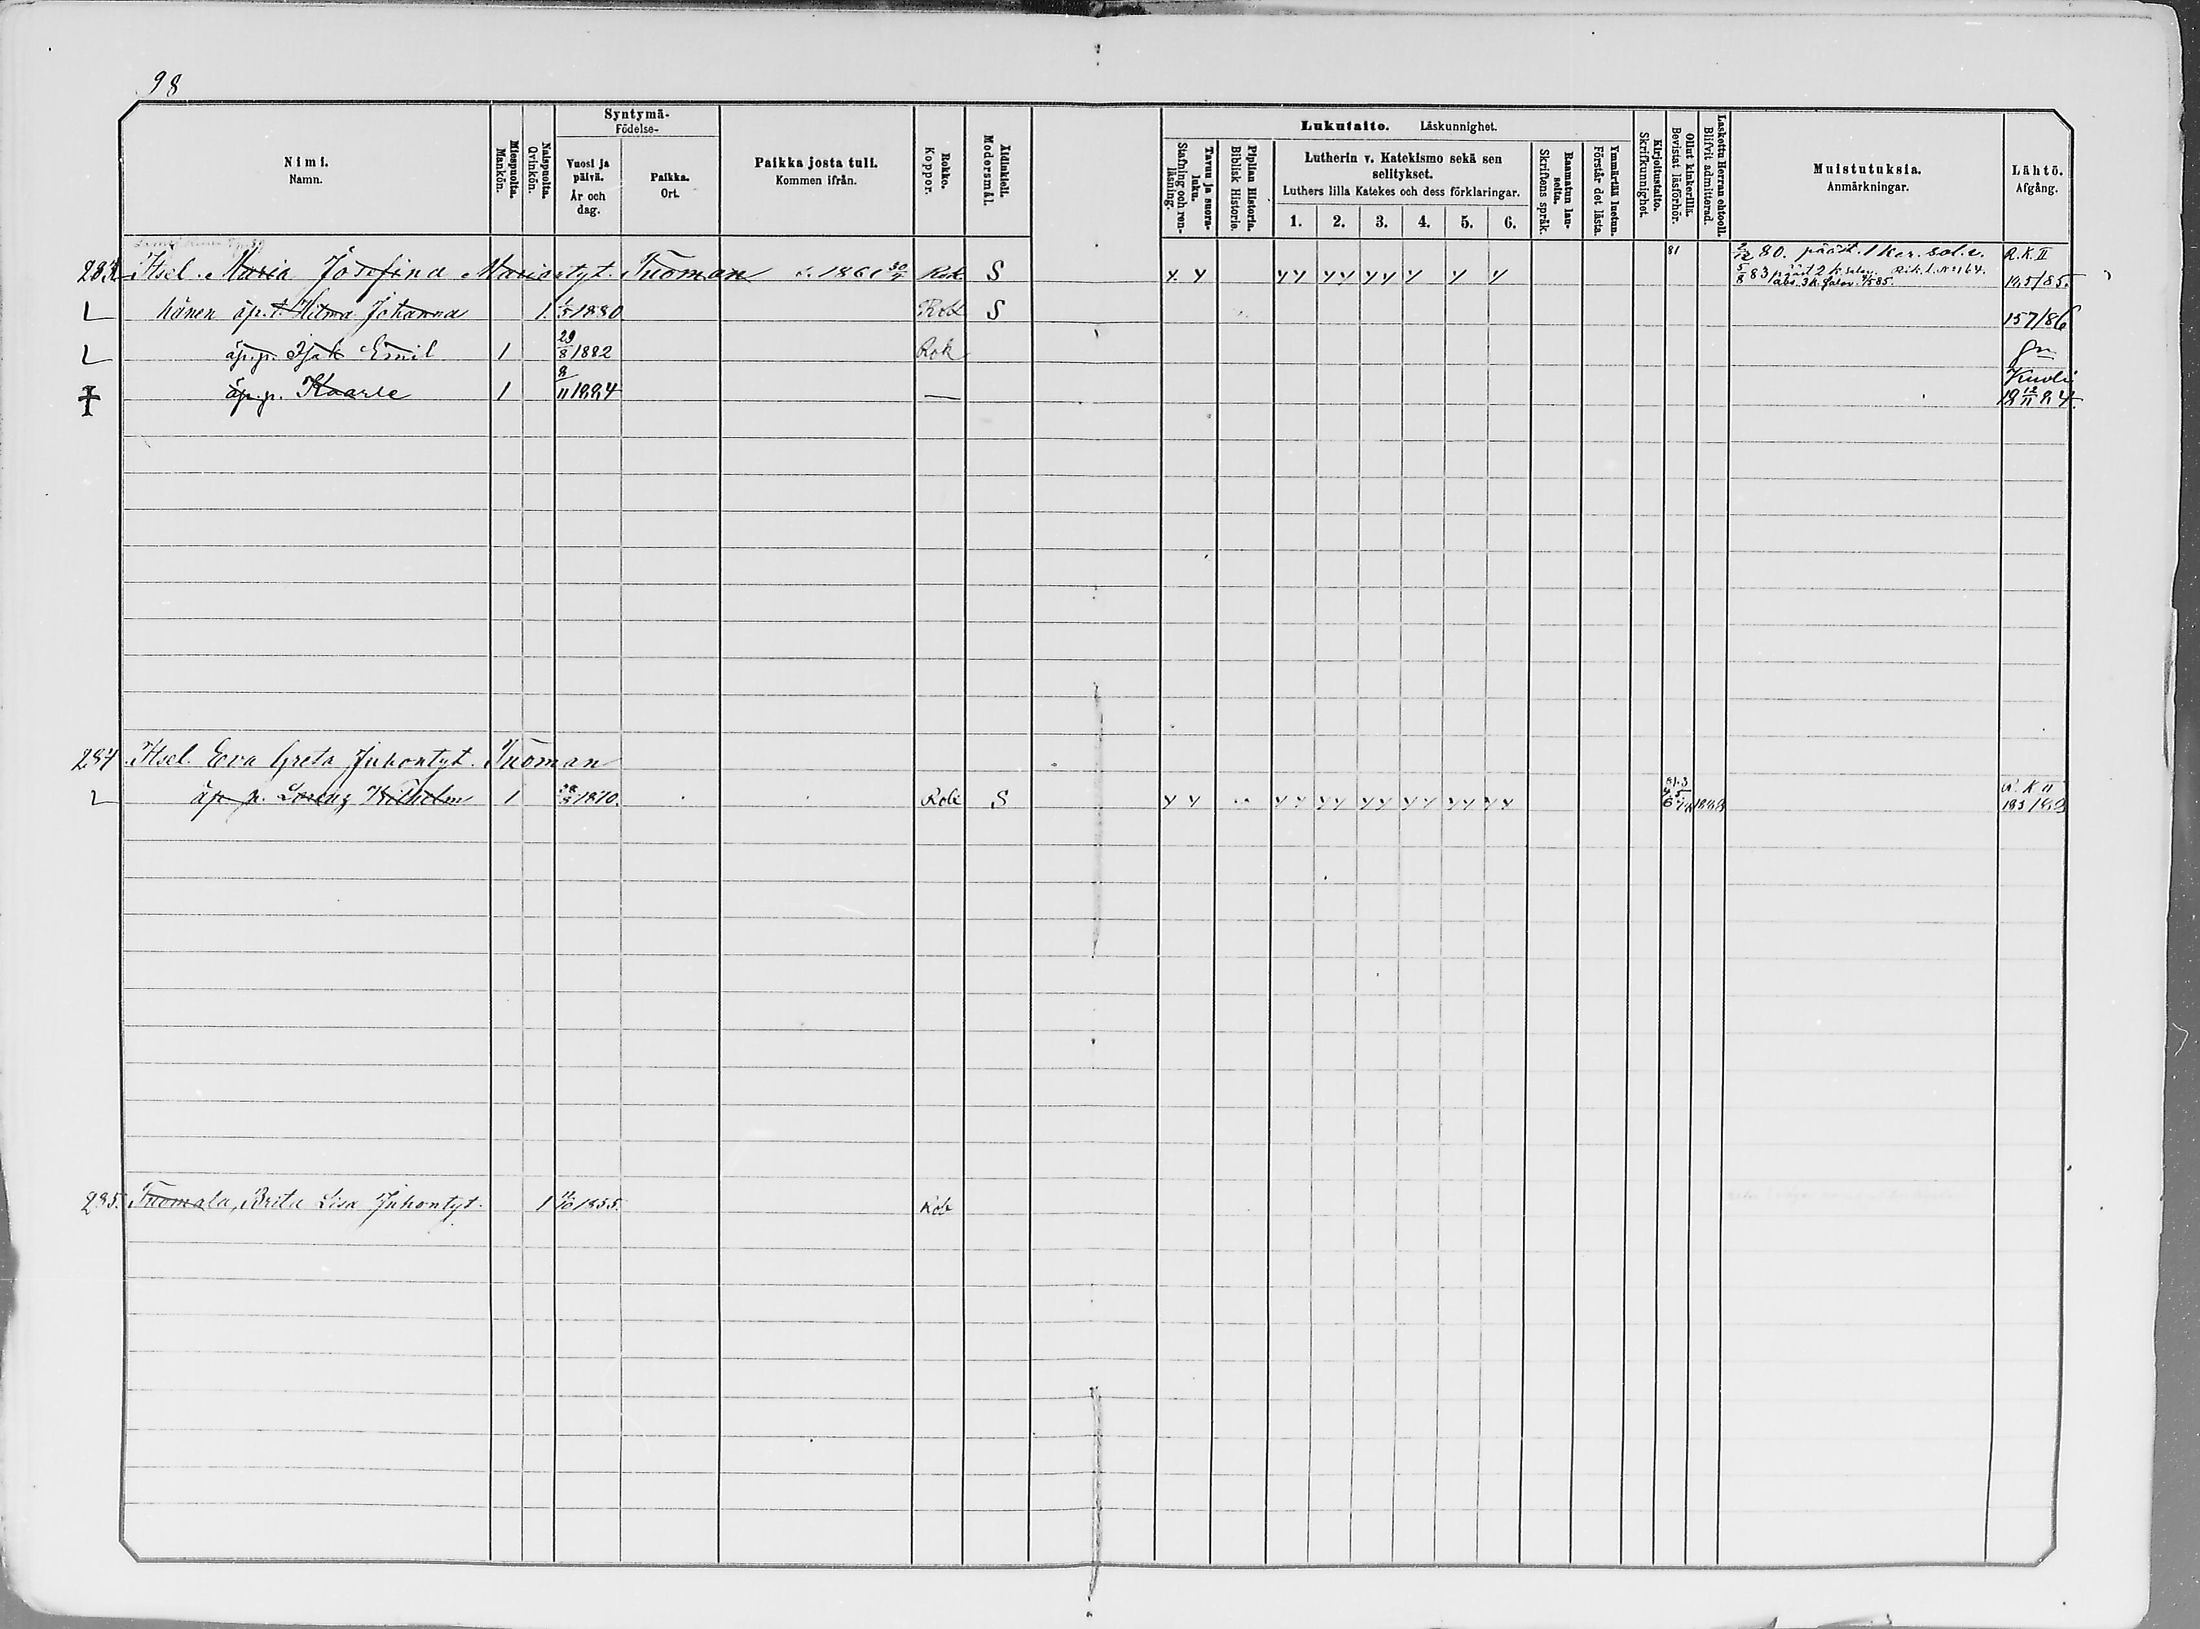 98
Nimi.
Namn.
Miespuolta.
Mankön.
Naispuolta.
Qvinkön.
Syntymä-
Födelse-
Vuosi ja
päivä.
År och
dag.
Paikka.
Ort.
Paikka josta tuli.
Kommen ifrån.
Rokko.
Koppor.
Äidinkieli.
Modersmål.
Lukutaito. Läskunnighet.
Tavuu ja suora-
luku.
Stafning och ren-
läsning.
Piplian Historia.
Biblisk Historie.
Lutherin v. Katekismo sekä sen
selitykset.
Luthers lilla Katekes och dess förklaringar.
1. 2. 3. 4. 5. 6.
Raamatun lau-
seita.
Skriftens språk.
Ymmärtää luetun.
Förstår det lästa.
Kirjoitustaito.
Skrifkunnighet.
Ollut kinkerillä.
Bevistat läsförhör.
Laskettu Herran ehtooll.
Blifvit admitterad.
Muistutuksia.
Anmärkningar.
Lähtö.
Afgång.
283. Itsel. Maria Josefina Mariantyt. Tuoman s. 1861 30/7 Rok S 81 80. pääst. 1 ker. sal. v. R.K. II
5/8 83 pääst 2 k. salav. Rik. l. No 164.
abs. 3 k. salav. 195/85.
L hänen äp. t. Hilma Johanna 1. 1880 Rok S 157/86
L äp. p. Isak Emil 1 29/8 1882 Rok
äp. p. Kaarle 1 8/11 1884 — Kuoli
18 12/11 84.
284 Itsel. Eva Greta Juhontyt. Tuoman
L äp. p. Lorenz Wilhelm 1 1870. Rok S 1888 R. K II
193/92
285. Tuomala, Brita Lisa Juhontyt. 1 1855. Rok